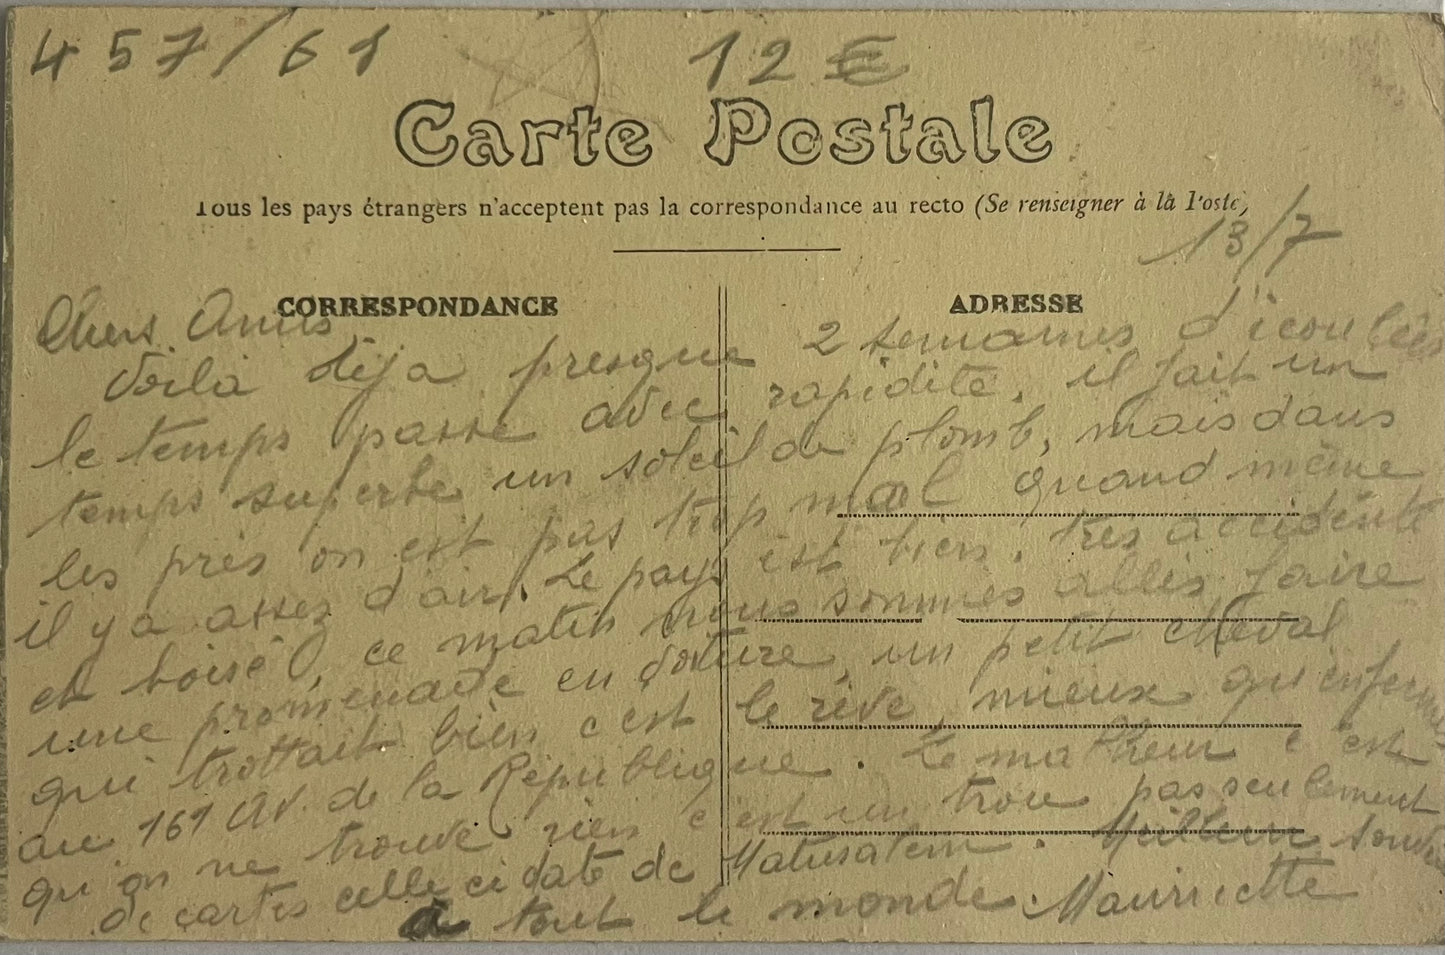 457/61
12 €
Carte Postale
Tous les pays étrangers n'acceptent pas la correspondance au recto (Se renseigner à là l'oste)
13/7
CORRESPONDANCE
ADRESSE
Chers Amis
Voilà déja presque 2 semaines d'écoulées
le temps passe avec rapidité. il fait un
temps superbe un soleil de plomb, mais dans
les prés on est pas trop mal quand même
il y a assez d'air. Le pays est bien, très accidenté
et boisé, ce matin nous sommes allés faire
une promenade en voiture, un petit cheval
qui trottait bien c'est le rêve, mieux qu'enfermés
au 161 Av. de la République. Le malheur c'est
qu'on ne trouve rien c'est un trou pas seulement
de cartes celle ci date de Matusalem.
à tout le monde. Mauricette